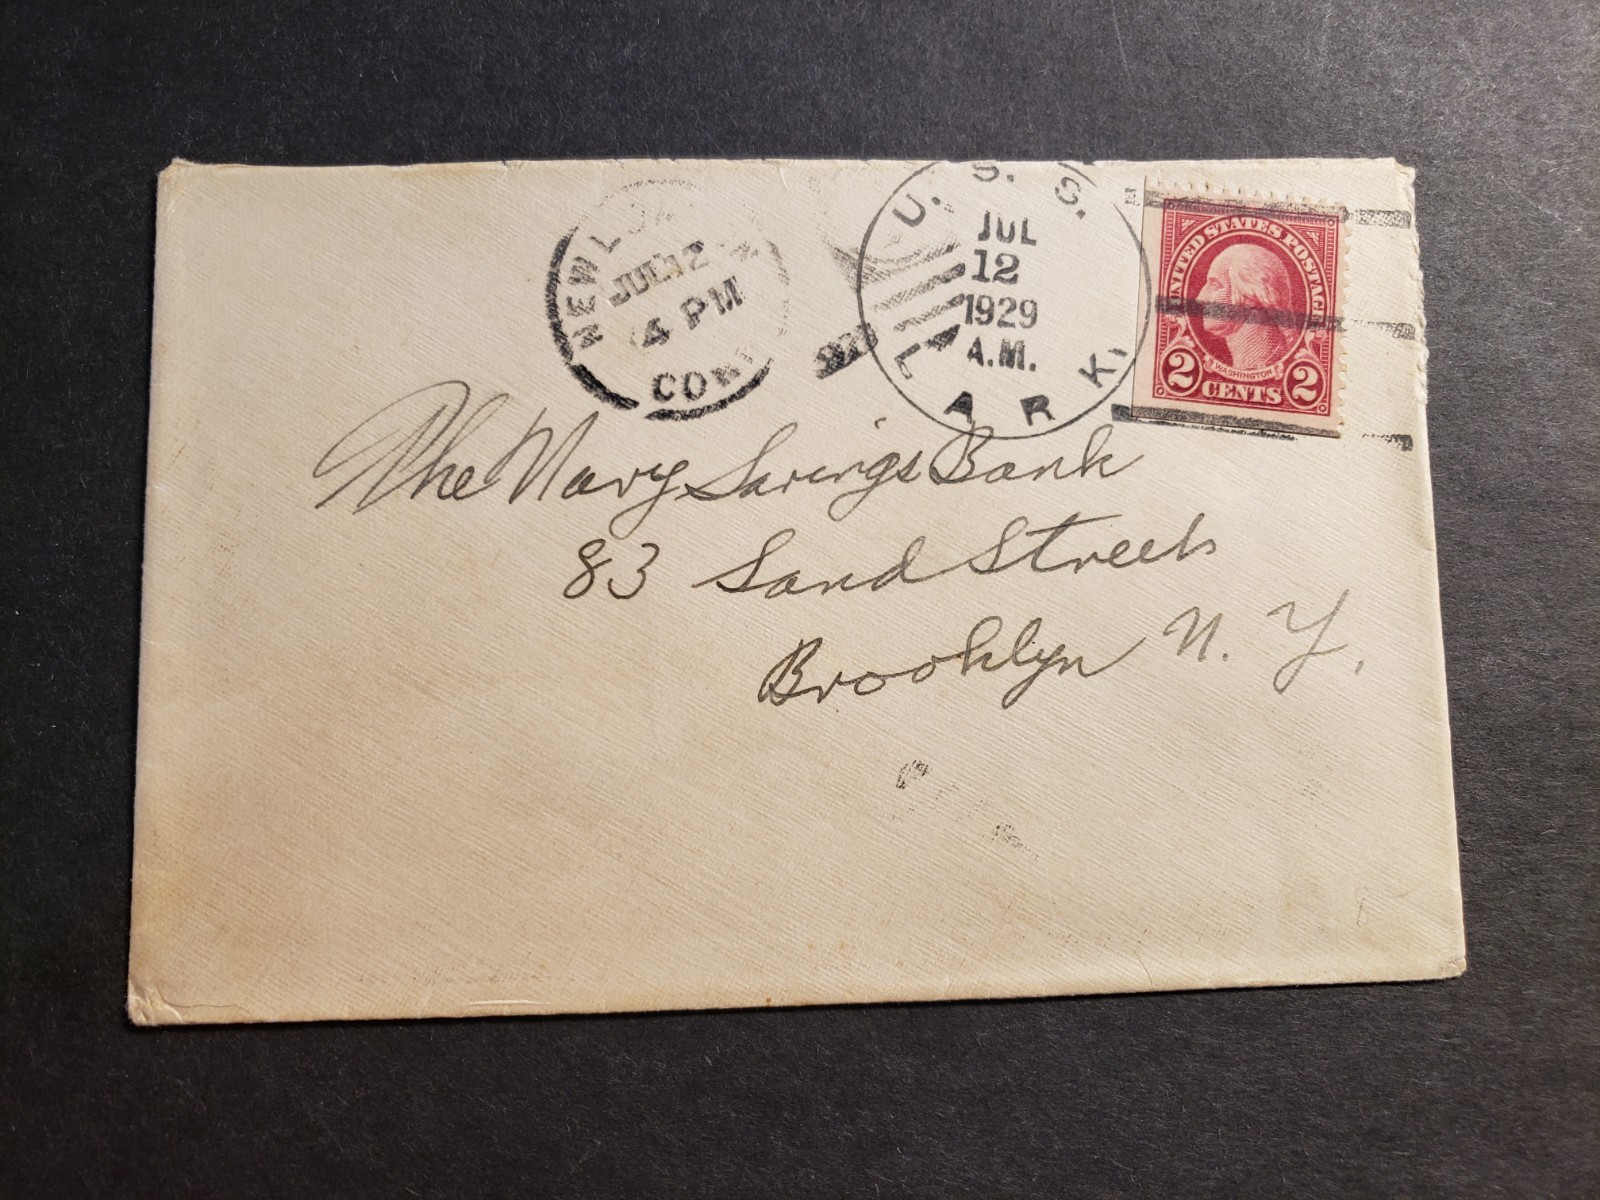 NEW LON
JUL 12
4 PM
CONN
U. S. S.
JUL
12
1929
A.M.
LARK.
UNITED STATES POSTAGE
WASHINGTON
2 CENTS 2
The Navy Savings Bank
83 Sand Street
Brooklyn N. Y.